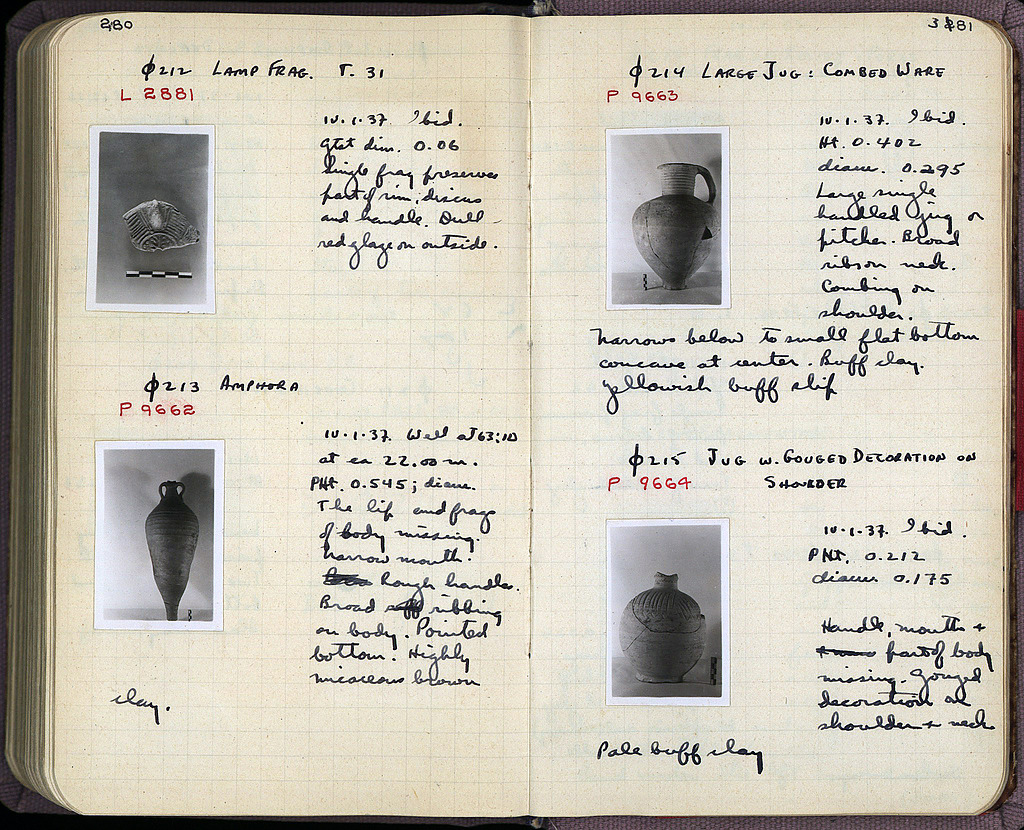 280
ϕ212 LAMP FRAG. T. 31
L 2881
IV·1·37. Ibid.
gtst dim. 0.06
Single frag preserves
part of rim, discus
and handle. Dull
red glaze on outside.
ϕ213 AMPHORA
P 9662
IV·1·37. Well at 63:10
at ca 22.00 m.
PHt. 0.545; diam.
The lip and frags
of body missing.
Narrow mouth.
Rough handles.
Broad ribbing
on body. Pointed
bottom. Highly
micaceous brown
clay.
281
ϕ214 LARGE JUG: COMBED WARE
P 9663
IV·1·37. Ibid.
Ht. 0.402
diam. 0.295
Large single
handled jug or
pitcher. Broad
ribs on neck.
Combing on
shoulder.
Narrows below to small flat bottom
concave at center. Buff clay.
Yellowish buff slip
ϕ215 JUG W. GOUGED DECORATION ON
SHOULDER
P 9664
IV·1·37. Ibid.
PHt. 0.212
diam 0.175
Handle, mouth +
part of body
missing. Gouged
decoration on
shoulder + neck
Pale buff clay